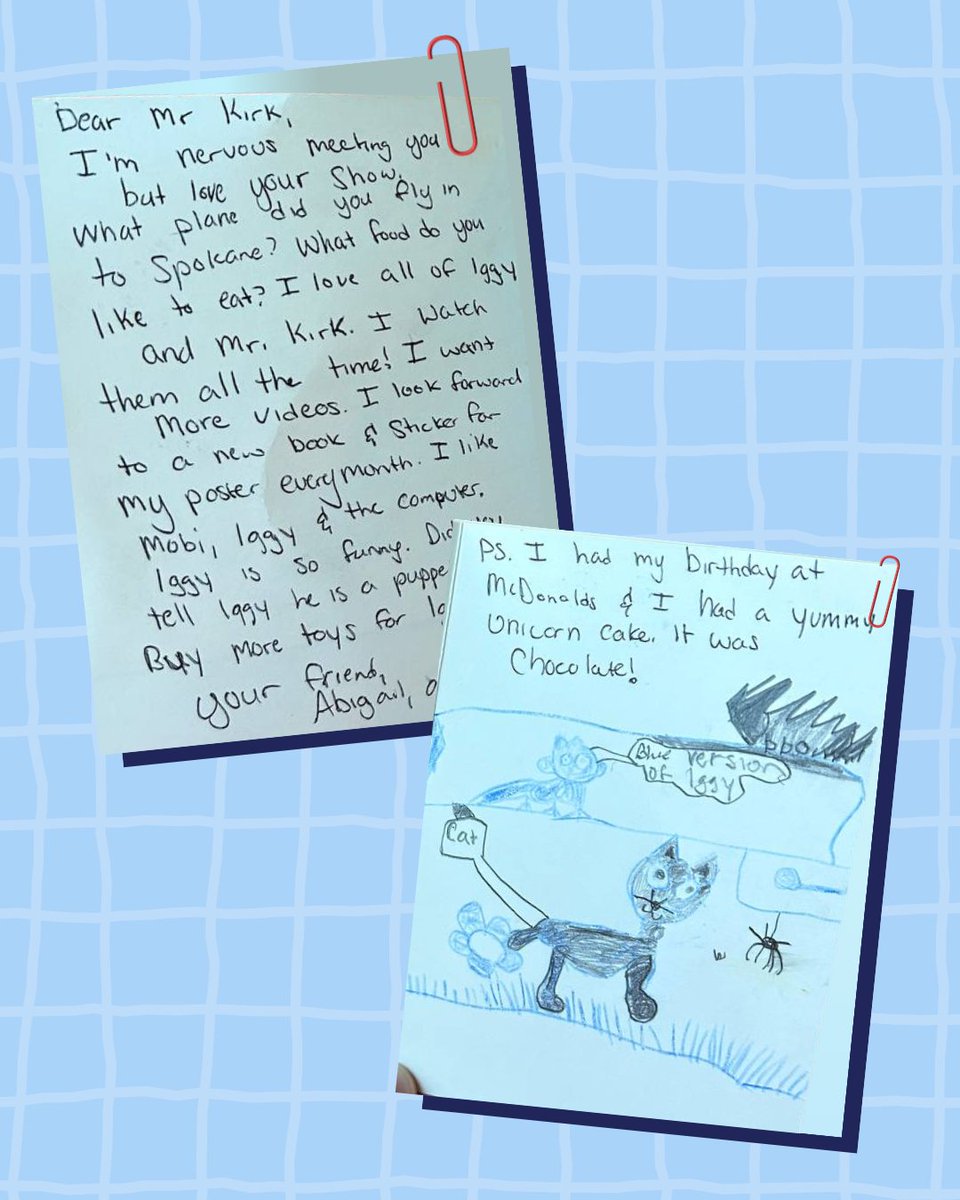 Dear Mr Kirk,
I'm nervous meeting you
but love your Show.
What plane did you fly in
to Spokane? What food do you
like to eat? I love all of Iggy
and Mr. Kirk. I watch
them all the time! I want
More videos. I look forward
to a new book & Sticker for
my poster every month. I like
Mobi, Iggy & the computer.
Iggy is so funny. Did
tell Iggy he is a
Buy more toys for
your friend,
Abigail,
PS. I had my birthday at
McDonalds & I had a yummy
Unicorn cake. It was
Chocolate!
Blue version
of Iggy
Cat